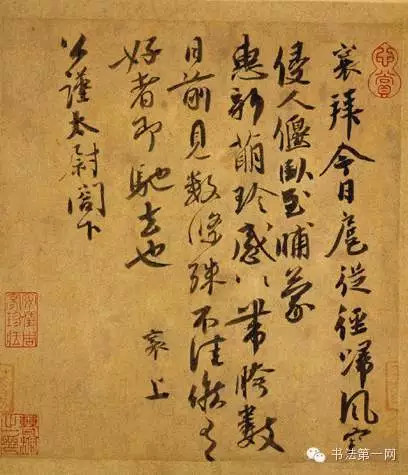 襄拜今日扈從徑歸風寒
侵人偃臥至晡蒙
惠新萠珍感〻帶胯數
日前見數條殊不佳候有
好者即馳去也
襄上
公謹太尉閤下
书法第一网